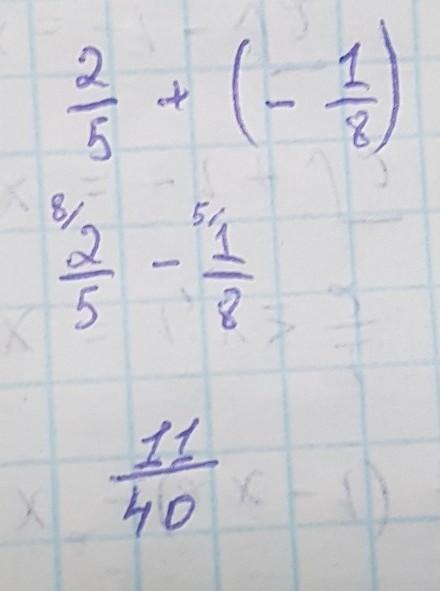 2/5 + (- 1/8)
8/ 2/5 - 5/ 1/8
11/40